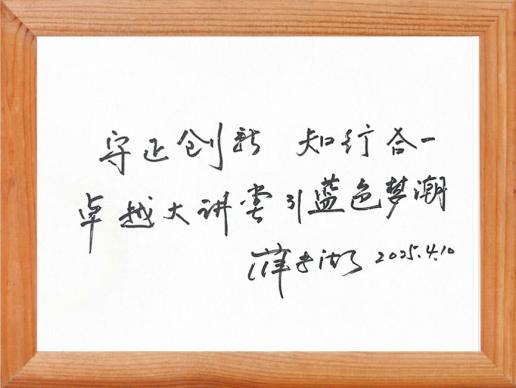 守正创新 知行合一
卓越大讲堂引蓝色梦潮
薛长湖 2025.4.10